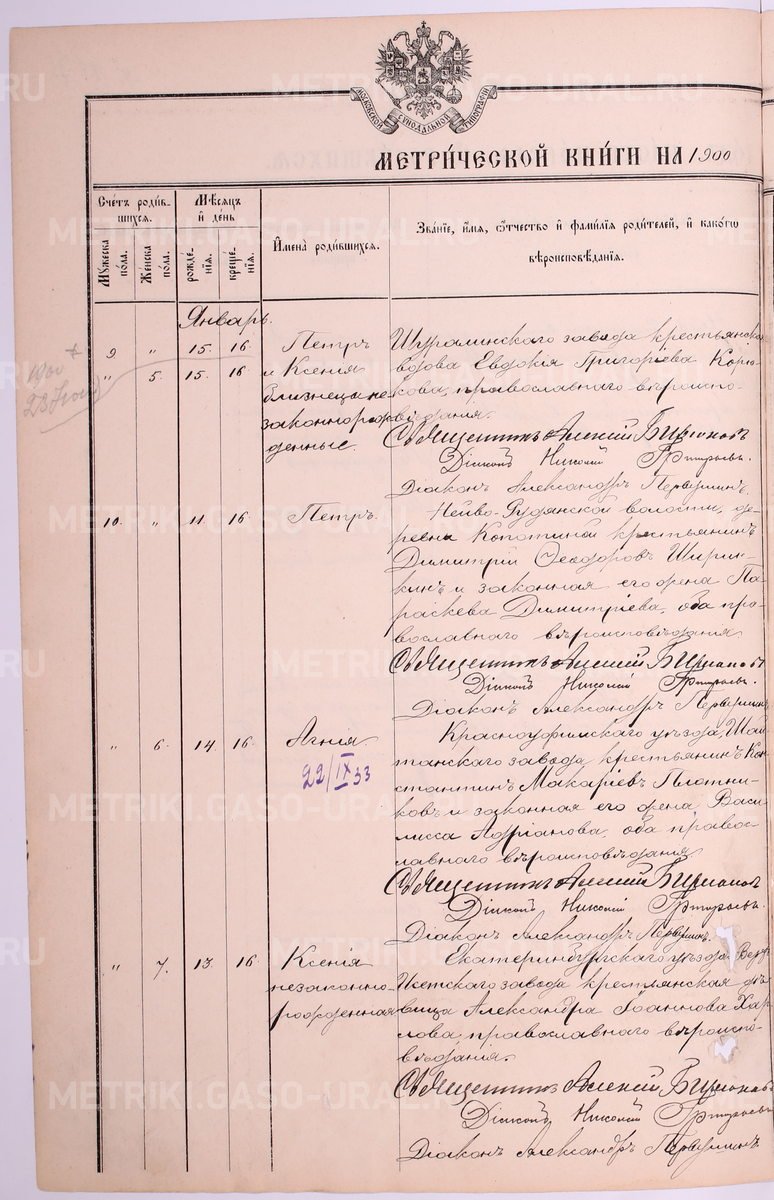 МОСКОВСКОЙ СѴНОДАЛЬНОЙ ТИПОГРАФІИ
МЕТРИ́ЧЕСКОЙ КНИ́ГИ НА 1900
Сче́тъ роди́в-
шихся.
Му́жеска по́ла.
Же́нска по́ла.
Мѣ́сяцъ
и҆ де́нь
рожде́нїя.
креще́нїя.
И҆мена̀ роди́вшихся.
Зва́нїе, и҆́мя, ѻ҆́тчество и҆ фами́лїя роди́телей, и҆ како́гѡ
вѣроисповѣ́данїя.
Январь.
9 " 15. 16. Петръ
" 5. 15. 16 и Ксенія
близнецы не-
законнорож
денные.
1900
Шуралинскаго завода крестьянская
вдова Евдокія Григорьева Корю-
кова, православнаго вѣроиспо-
вѣданія.
Священникъ Алексій
Діаконъ Николай
Діаконъ Александръ Первушинъ.
10. " 11. 16. Петръ.
Нейво-Рудянской волости, де-
ревни Копотиной крестьянинъ
Димитрій Ѳеодоровъ Ширин-
кинъ и законная его жена Па-
раскева Димитріева, оба пра-
вославнаго вѣроисповѣданія
Священникъ Алексій
Діаконъ Николай
Діаконъ Александръ Первушинъ
" 6. 14. 16. Агнія.
22/IX 33
Красноуфимскаго уѣзда, Шай
танскаго завода крестьянинъ Кон
стантинъ Макаріевъ Плотни-
ковъ и законная его жена Васи
лисса Адріанова, оба правос-
лавнаго вѣроисповѣданія
Священникъ Алексій
Діаконъ Николай
Діаконъ Александръ Первушинъ.
" 7. 13. 16. Ксенія
незаконно-
рожденная
Екатеринбургскаго уѣзда Верх
Исетскаго завода крестьянская дѣ
вица Александра Іоаннова Хар
лова, православнаго вѣроиспо-
вѣданія.
Священникъ Алексій
Діаконъ Николай
Діаконъ Александръ Первушинъ.
METRIKI.GASO-URAL.RU